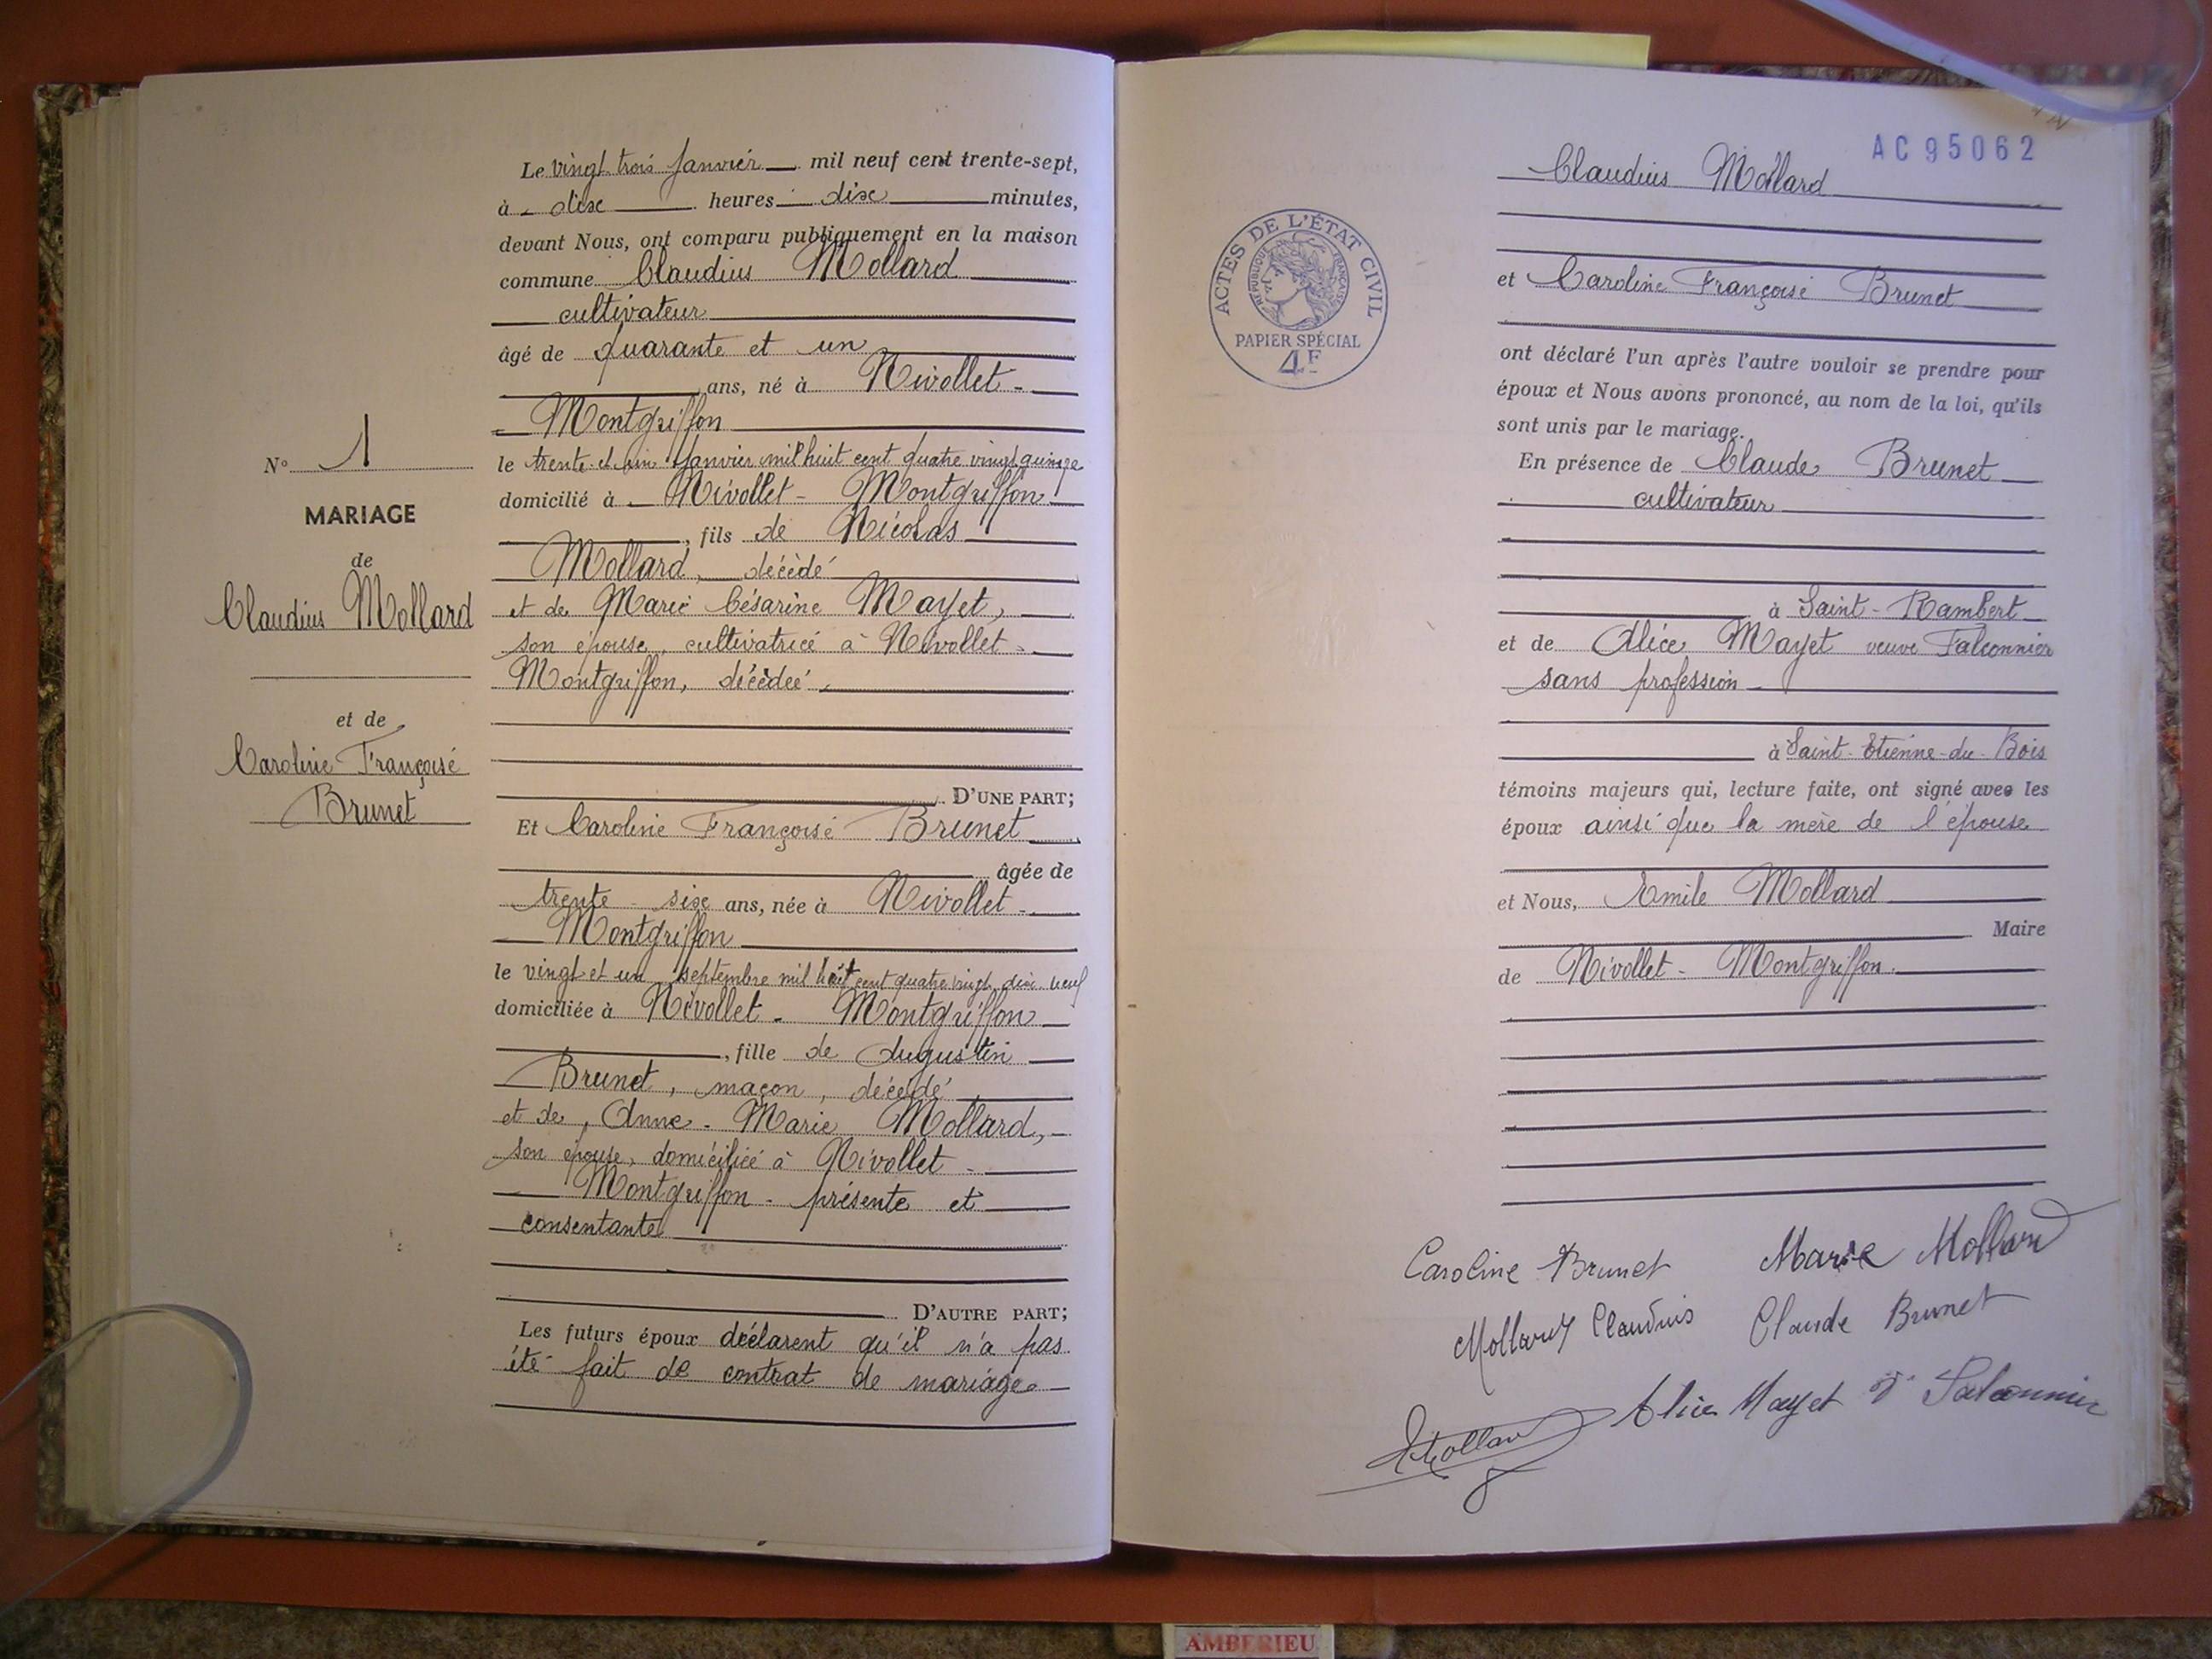 N° 1
MARIAGE
de
Claudius Mollard
et de
Caroline Françoise
Brunet
Le vingt trois Janvier mil neuf cent trente-sept,
à dix heures dix minutes,
devant Nous, ont comparu publiquement en la maison
commune Claudius Mollard
cultivateur
âgé de quarante et un
ans, né à Nivollet-
Montgriffon
le trente et un Janvier mil huit cent quatre vingt quinze
domicilié à Nivollet - Montgriffon
, fils de Nicolas
Mollard, décédé
et de Marie Césarine Mayet,
son épouse, cultivatrice à Nivollet-
Montgriffon, décédée
D'UNE PART;
Et Caroline Françoise Brunet
âgée de
trente six ans, née à Nivollet-
Montgriffon
le vingt et un septembre mil huit cent quatre vingt dix neuf
domiciliée à Nivollet - Montgriffon
, fille de Augustin
Brunet, maçon, décédé
et de, Anne-Marie Mollard,
son épouse, domiciliée à Nivollet-
Montgriffon - présente et
consentante
D'AUTRE PART;
Les futurs époux déclarent qu'il n'a pas
été fait de contrat de mariage
AC95062
ACTES DE L'ÉTAT CIVIL
RÉPUBLIQUE FRANÇAISE
PAPIER SPÉCIAL
4F
Claudius Mollard
et Caroline Françoise Brunet
ont déclaré l'un après l'autre vouloir se prendre pour
époux et Nous avons prononcé, au nom de la loi, qu'ils
sont unis par le mariage.
En présence de Claude Brunet
cultivateur
à Saint-Rambert
et de Alice Mayet veuve Falconnier
sans profession
à Saint-Etienne-du-Bois
témoins majeurs qui, lecture faite, ont signé avec les
époux ainsi que la mère de l'épouse
et Nous, Emile Mollard
Maire
de Nivollet - Montgriffon.
Caroline Brunet Marie Mollard
Mollard Claudius Claude Brunet
Alice Mayet Vve Falconnier
EMollard
AMBERIEU